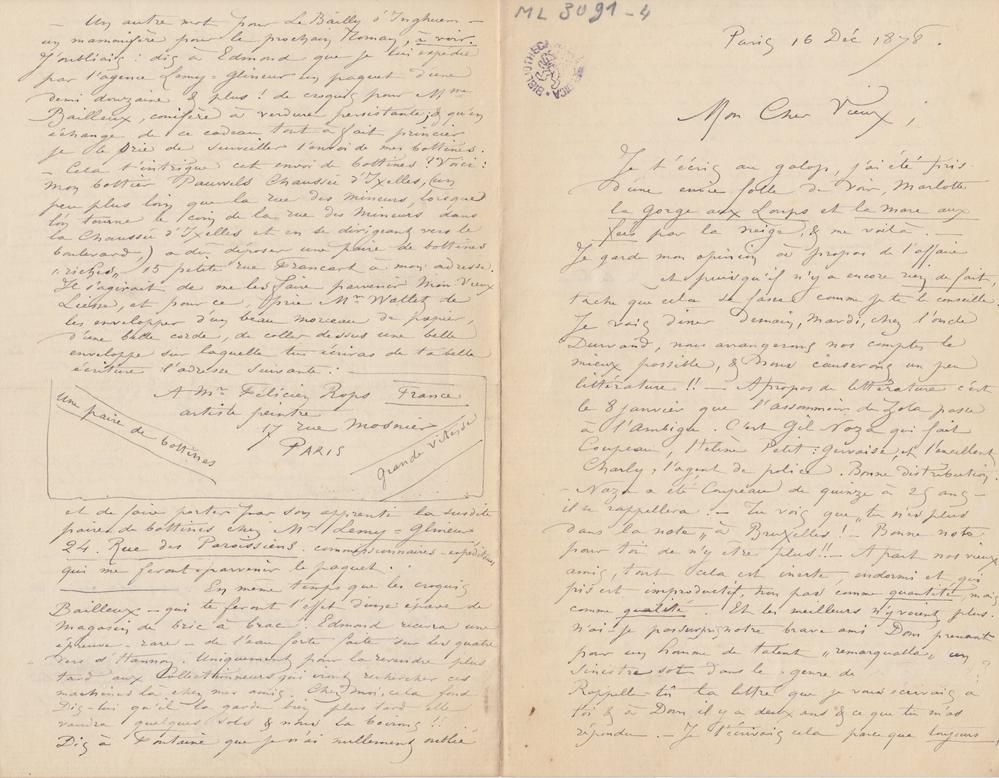 ML 3091-4
Paris 16 Déc 1878.
Mon Cher Vieux,
Je t'écris au galop, j'ai été pris
d'une envie folle de voir, Marlotte
la Gorge aux Loups et la mare aux
fées par la neige, & me voilà. —
Je garde mon opinion à propos de l'affaire
Puisqu'il n'y a encore rien de fait,
tache que cela se fasse comme je te le conseille.
Je vais diner demain, Mardi, chez l'oncle
Durand, nous arrangerons nos comptes le
mieux possible, & nous causerons un peu
littérature !! — A propos de littérature c'est
le 8 janvier que l'assommoir de Zola passe
à l'Ambigu. C'est Gil Naza qui fait
Coupeau, Hélène Petit : Gervaise, et l'excellent
Charly, l'agent de police. Bonne distribution.
— Naza a été Coupeau de quinze à 25 ans —
il se rappellera. — Tu vois que „tu n'es plus
dans la note„ à Bruxelles ! — Bonne note
pour toi de n'y être plus !! — A part nos vieux
amis, tout cela est inerte, endormi et, qui
pis est improductif, non pas comme quantité, mais
comme qualité. Et les meilleurs n'y voient plus.
n'ai-je pas surpris notre brave ami Dom prenant
pour un homme de talent „remarquable„ un
sinistre sot dans le genre de ?
Rappelle-toi la lettre que je vous écrivais à
toi & à Dom, il y a deux ans & ce que tu m'as
répondu. — Je t'écrivais cela parce que toujours,
Un autre mot pour Le Bailly d'Inghuem —
un mammifère pour le prochain Roman, à voir.
J'oubliais : dis à Edmond que je lui expédie
par l'agence Lemy-Glineur un paquet d'une
demi douzaine & plus ! de croquis pour Mme
Bailleux, conifère à verdure persistante, & qu'en
échange de ce cadeau tout à fait princier
je le prie de surveiller l'envoi de mes bottines.
— Cela t'intrigue cet envoi de bottines ? Voici :
mon bottier Pauwels Chaussée d'Ixelles, (un
peu plus loin que la rue des Mineurs, lorsque
l'on tourne le coin de la rue des Mineurs dans
la Chaussée d'Ixelles et en se dirigeant vers le
boulevard,) a dû déposer une paire de bottines
„riches„ 15 petite rue Francart à mon adresse.
Il s'agirait de me les faire parvenir Mon Vieux
Liesse, et pour ce, prie Mr Wallet de
les envelopper d'un beau morceau de papier,
d'une belle corde, de coller dessus une belle
enveloppe sur laquelle tu écriras de ta belle
écriture l'adresse suivante :
A Mr Félicien Rops France
artiste peintre
17 rue Mosnier
PARIS
Une paire de bottines
grande vitesse
et de faire porter par son apprenti la susdite
paire de bottines chez Mrs Lemy-Glineur
24. Rue des Paroissiens. commissionnaires-expéditeurs
qui me feront parvenir le paquet.
En même temps que les croquis
Bailleux — qui te feront l'effet d'une épave de
magasin de bric à brac. Edmond recevra une
épreuve — rare — de l'eau forte faite sur les quatre
vers d'Hannon. Uniquement pour la revendre plus
tard aux Collectionneurs qui vont rechercher ces
machines là, cher mon ami. Chez moi, cela fond
Dis-lui qu'il la garde bien, plus tard elle
vaudra quelques sols & nous la boirons !!
Dis à Fontaine que je n'ai nullement oublié